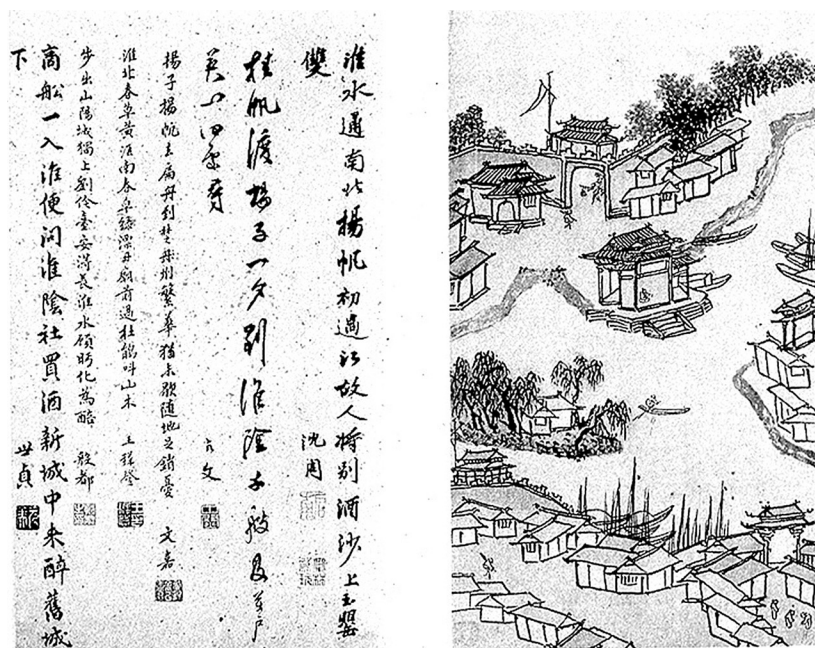 淮水通南北揚帆初過江故人将别酒沙上玉罌
雙 沈周
挂帆渡揚子一夕到淮陰千艘及萬戶
揚子揚帆去扁舟到楚州繁華猶未歇隨地足銷憂 文嘉
淮北春草黃淮南春草綠漂母廟前過杜鵑叫山木 王穉登
步出山陽城獨上劉伶臺安得長淮水化為醅 殷都
商舩一入淮便問淮陰社買酒新城中来醉舊城
下 世貞